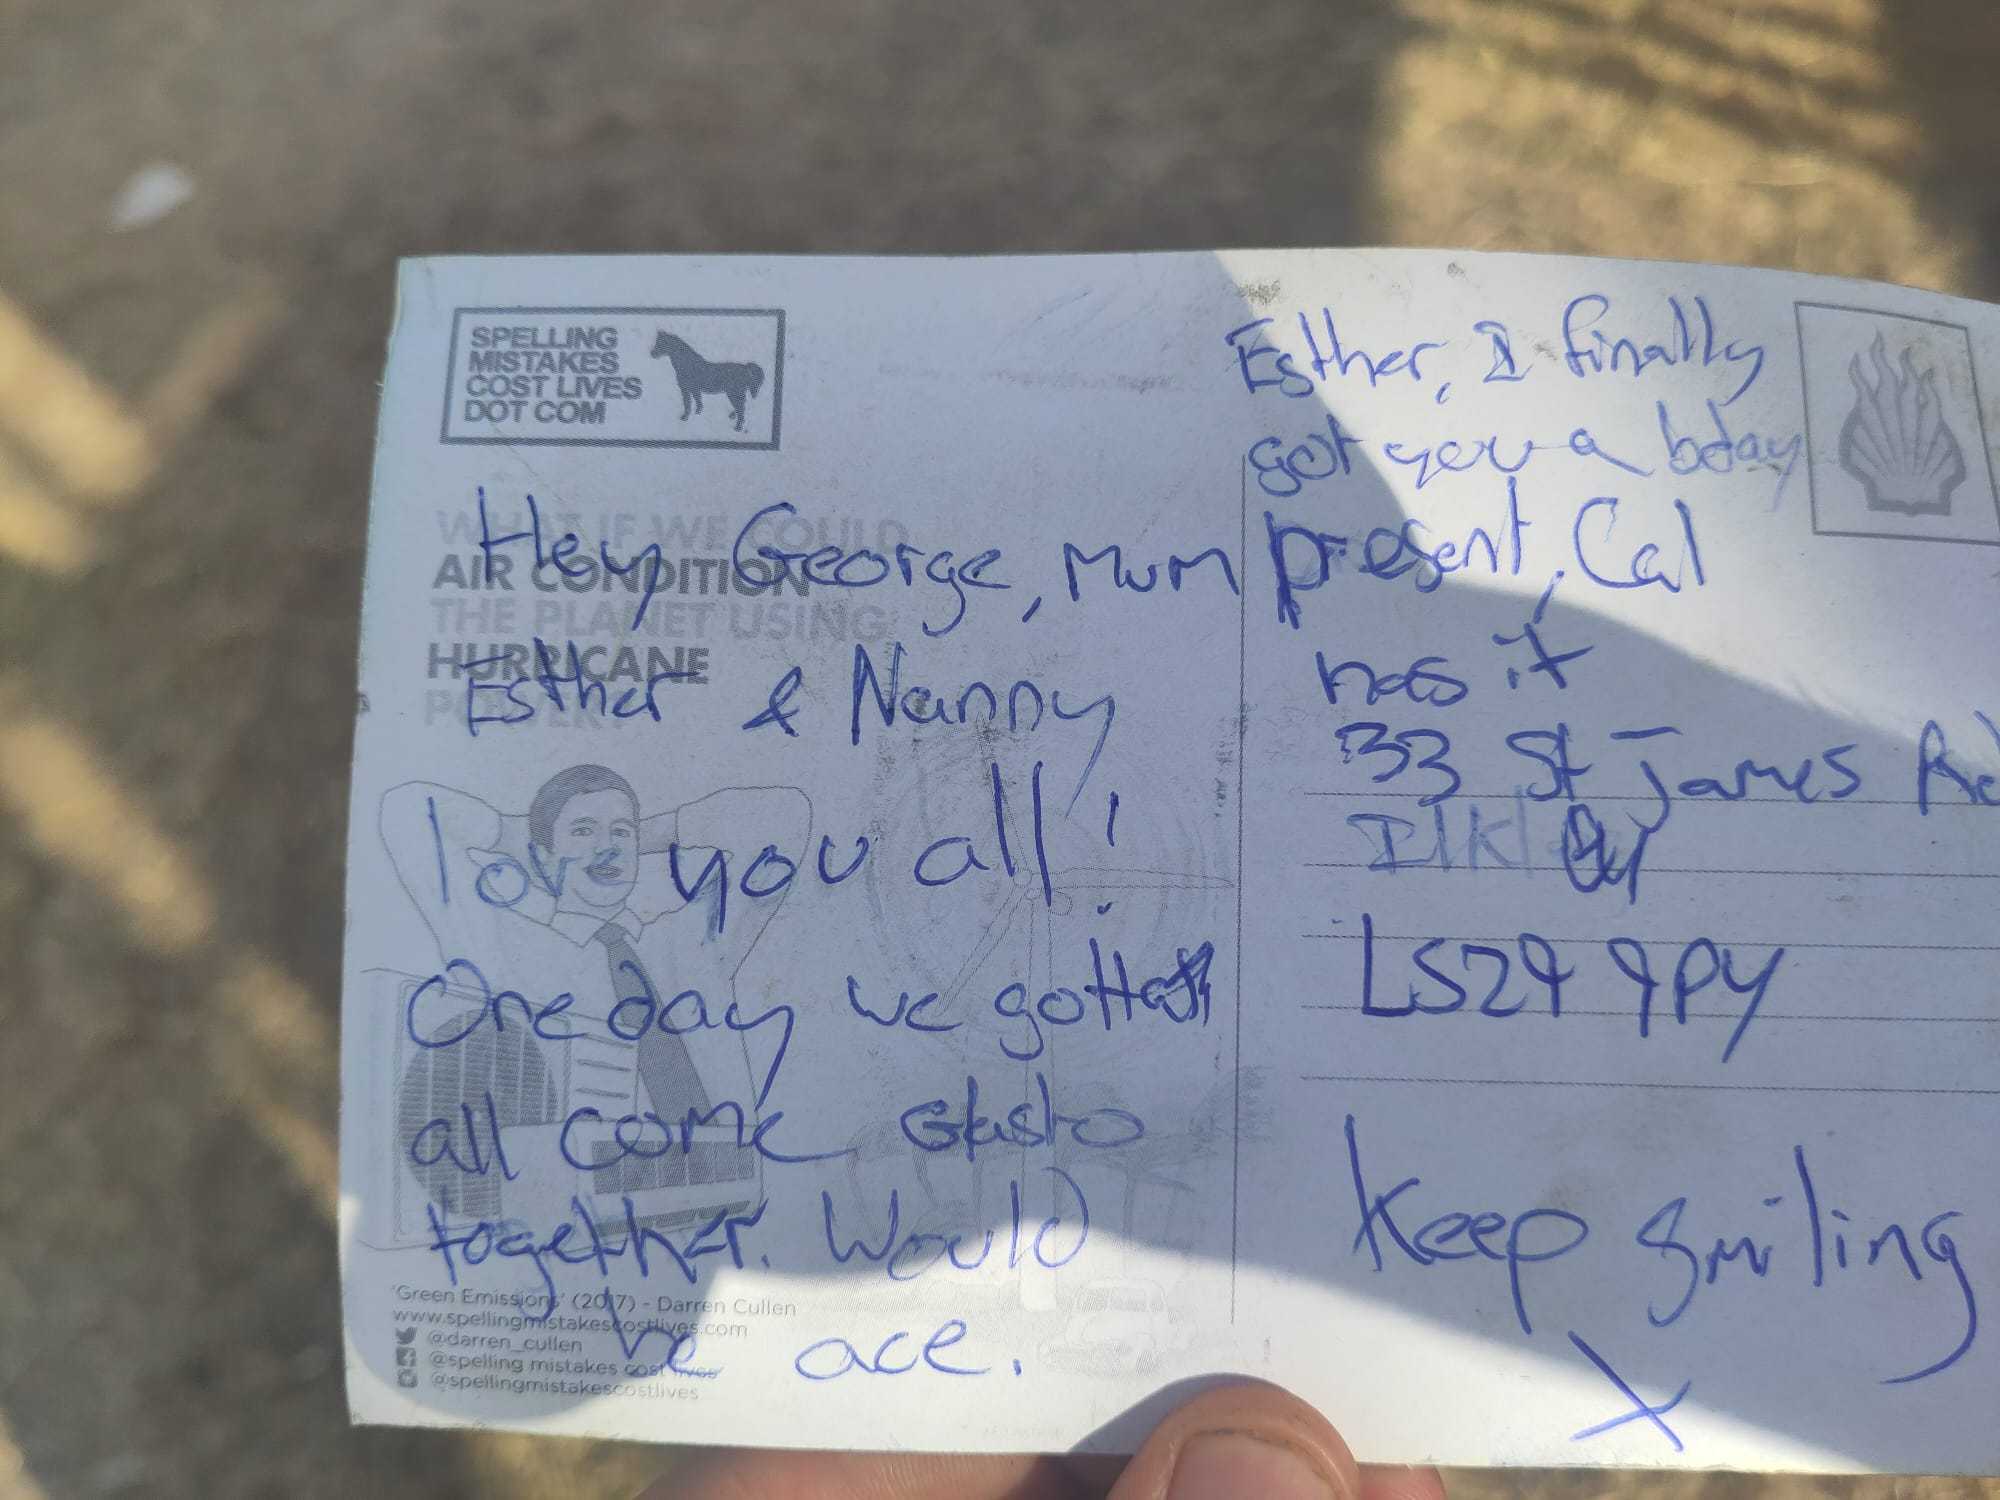 SPELLING
MISTAKES
COST LIVES
DOT COM
WHAT IF WE COULD
AIR CONDITION
THE PLANET USING
HURRICANE
POWER
Hey George, Mum
Esther & Nanny
love you all!
One day we gotta
all come Glasto
together. Would
be ace.
'Green Emissions' (2017) - Darren Cullen
www.spellingmistakescostlives.com
@darren_cullen
@spelling mistakes cost lives
@spellingmistakescostlives
Esther, I finally
got you a bday
present, Cal
has it
33 St James Rd
Ilkley
LS29 9PY
Keep smiling
X